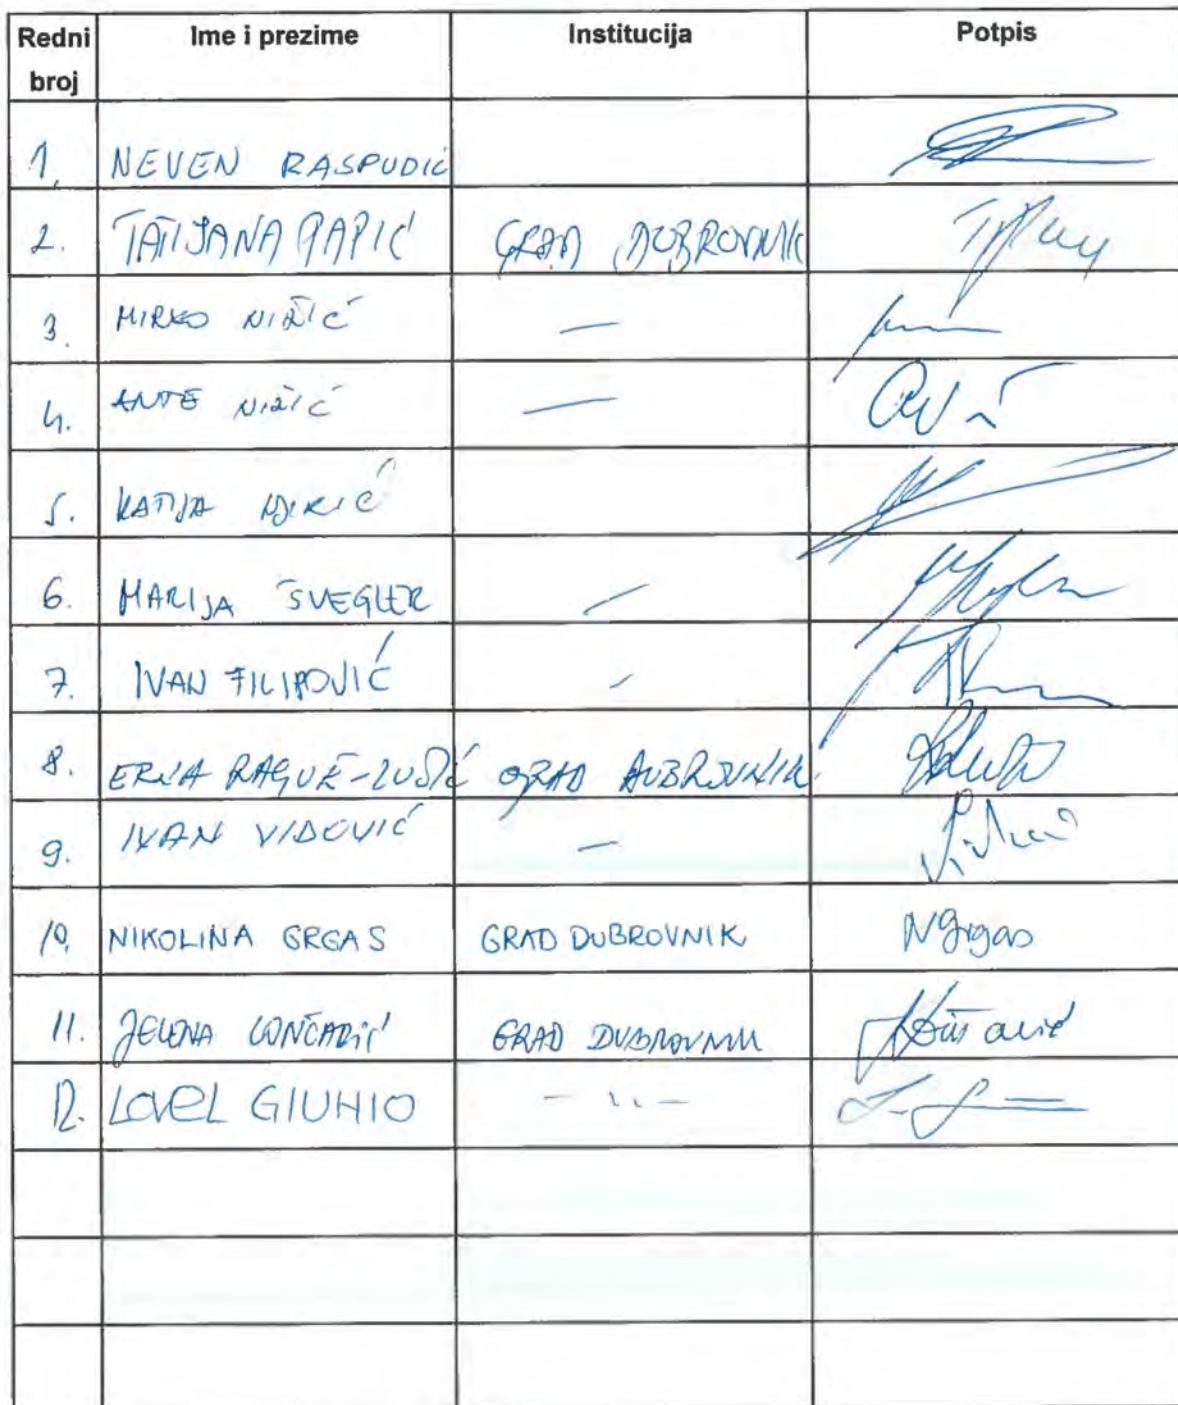 Redni broj Ime i prezime Institucija Potpis
1. NEVEN RASPUDIĆ
2. TATIJANA PAPIĆ GRAD DUBROVNIK
3. MIRKO NIŽIĆ —
4. ANTE NIŽIĆ —
5. KATIJA
6. MARIJA ŠVEGLER —
7. IVAN FILIPOVIĆ —
8. ERNA RAGUŽ-LUČIĆ GRAD DUBROVNIK
9. IVAN VIDOVIĆ —
10. NIKOLINA GRGAS GRAD DUBROVNIK NGrgas
11. JELENA LONČARIĆ GRAD DUBROVNIK
12. LOVEL GIUNIO - ,, -